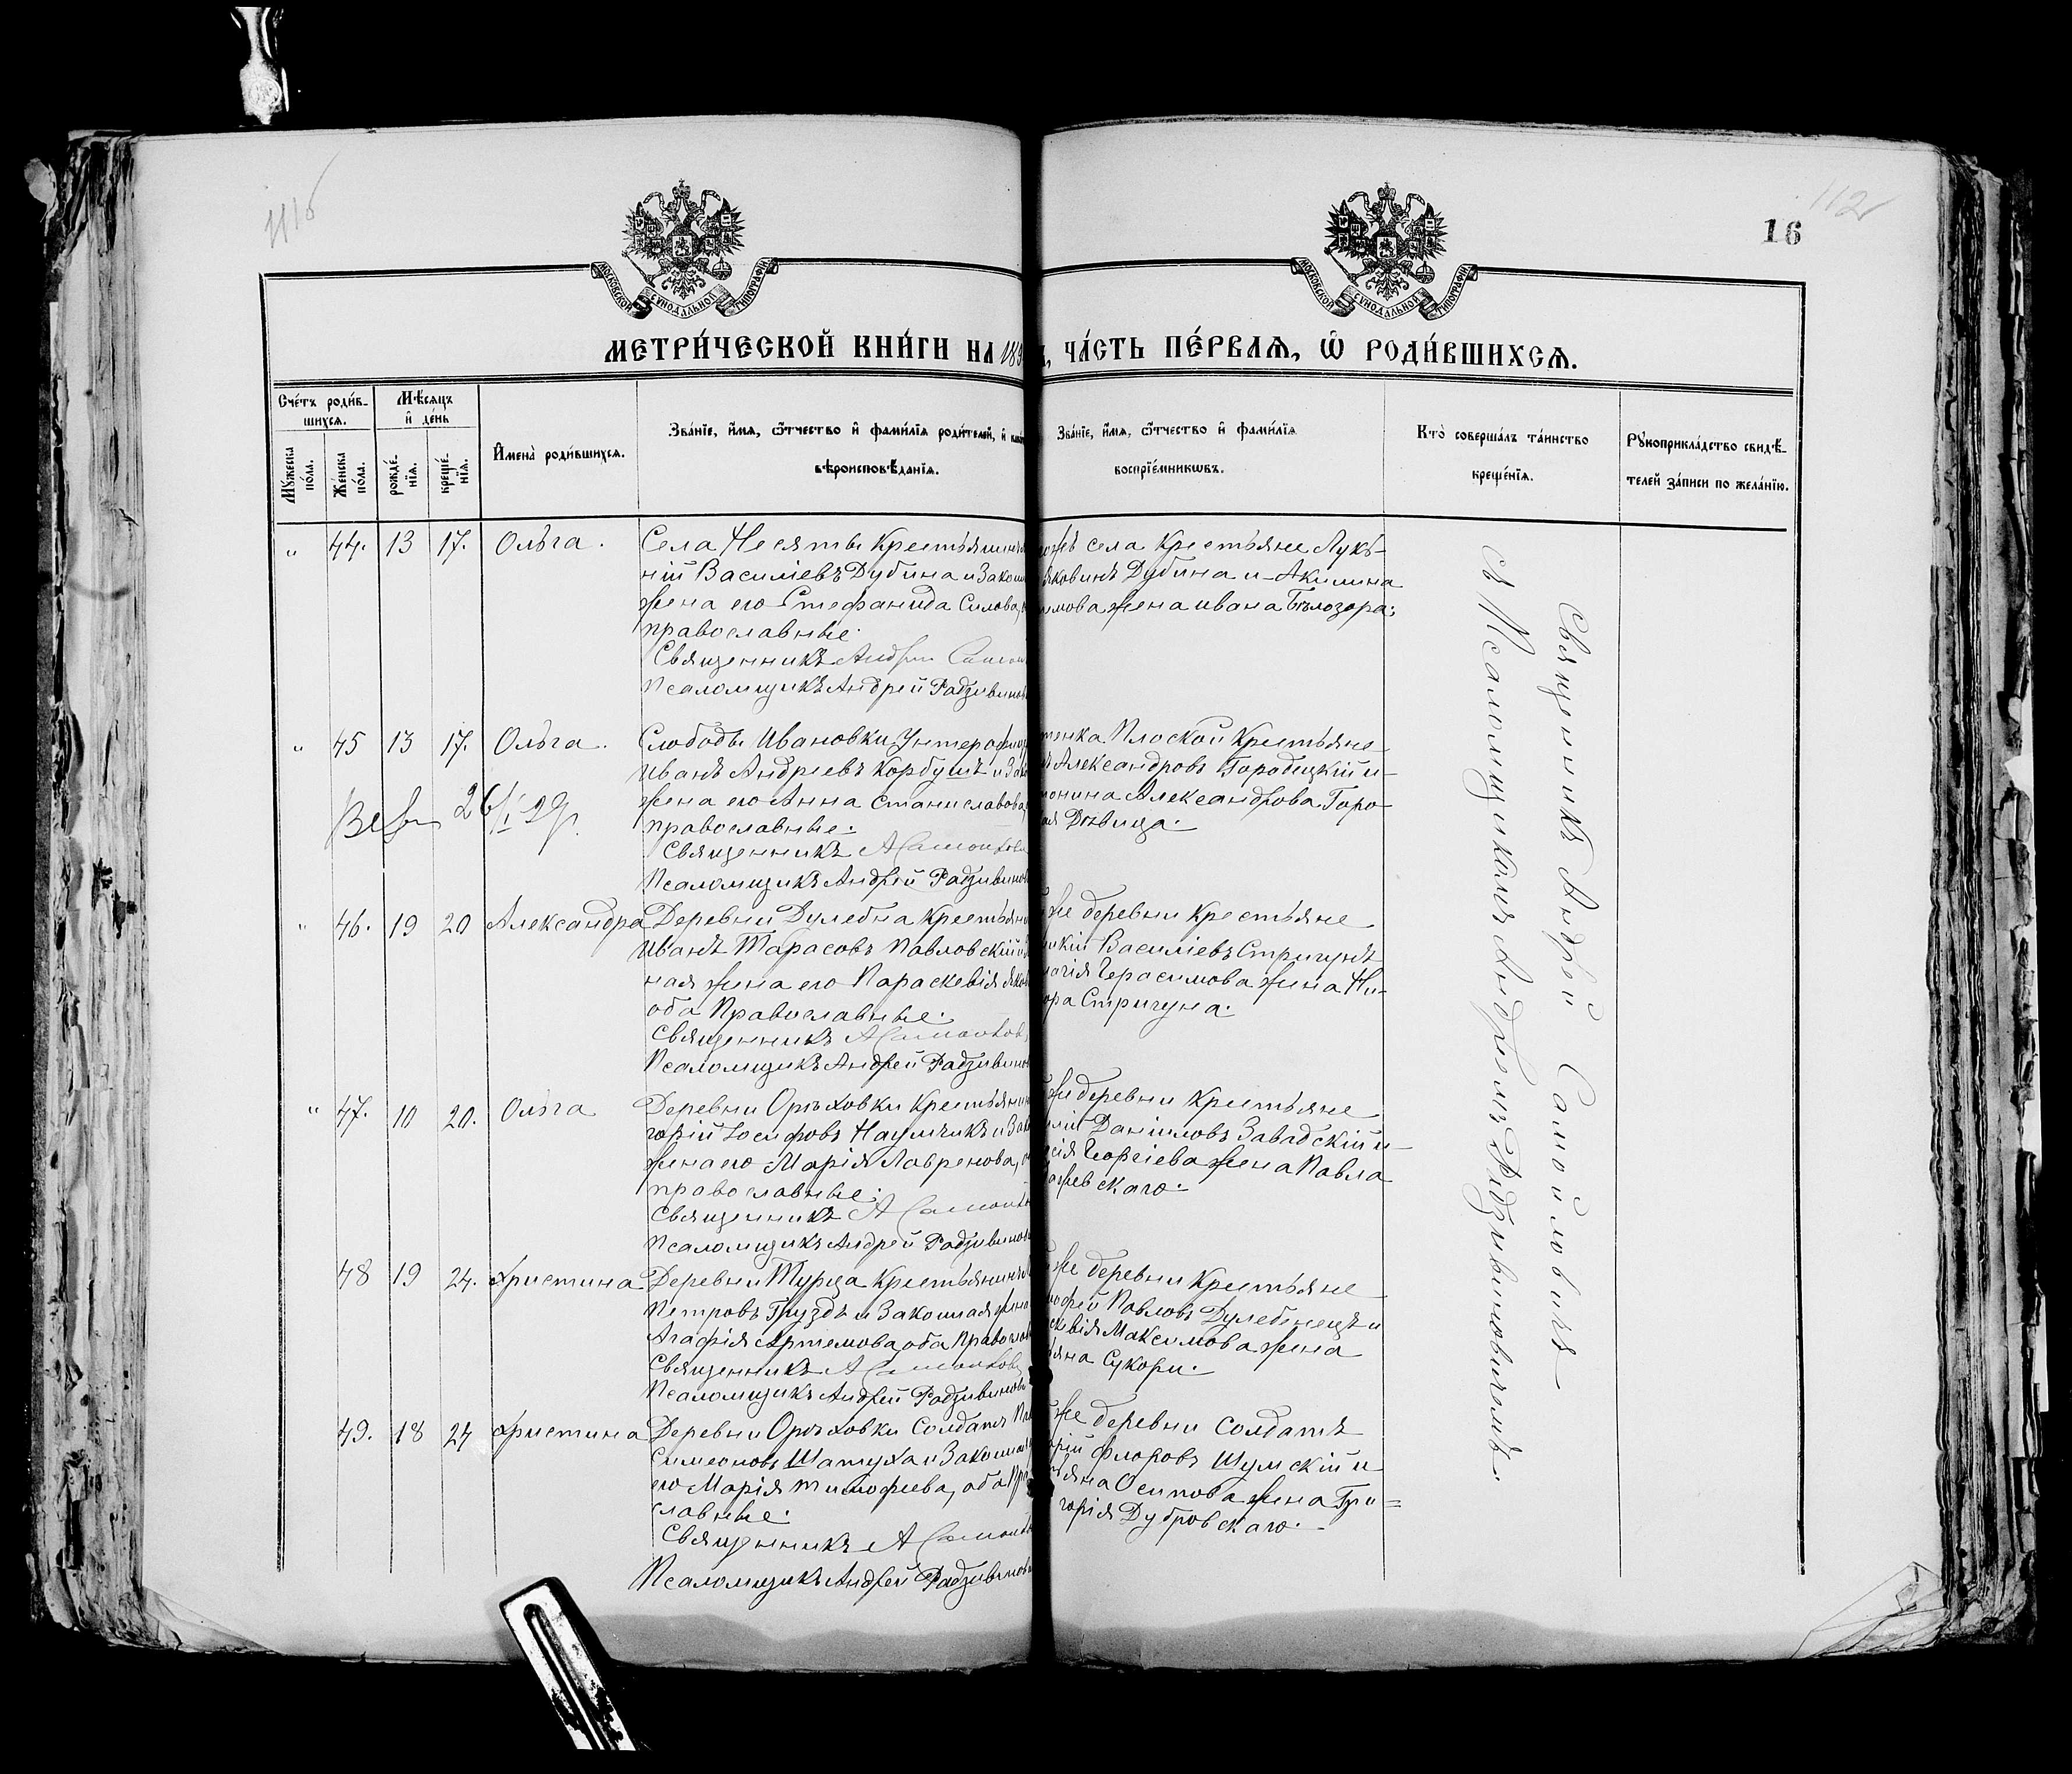 16
112
МОСКОВСКОЙ СУНОДАЛЬНОЙ ТИПОГРАФІИ
МОСКОВСКОЙ СУНОДАЛЬНОЙ ТИПОГРАФІИ
МЕТРИ́ЧЕСКОЙ КНИ́ГИ НА 189 , ЧА́СТЬ ПЕ́РВАѦ, Ѡ РОДИ́ВШИХСѦ.
Сче́тъ роди́в-
шихсѧ.
Му́жеска по́ла.
Же́нска по́ла.
Мѣ́сѧцъ
и де́нь
рожде́-
нїѧ.
креще́-
нїѧ.
И҆мена̀ роди́вшихсѧ.
Зва́нїе, и҆́мѧ, ѻ҆́тчество и҆ фами́лїѧ роди́телей, и҆
вѣроисповѣ́данїѧ.
Зва́нїе, и҆́мѧ, ѻ҆́тчество и҆ фами́лїѧ
воспрїе́мникѡвъ.
Кто̀ соверша́лъ та́инство
креще́нїѧ.
Рꙋкоприкла́дство свидѣ́-
телей за́писи по жела́нїю.
" 44. 13 17. Ольга.
Села Несяты Крестьянинъ
ній Василіевъ Дубина и Закон
жена его Стефанида Силова,
православные.
Священникъ Андрей Самой
Псаломщикъ Андрей Радзивинов
ожъ села Крестьяне Лукъ-
яковинъ Дубина и Акилина
имова жена Ивана Бѣлозора.
" 45 13 17. Ольга.
Слободы Ивановки Унтерофиц
Иванъ Андріевъ Корбушъ и За
жена его Анна Станиславова,
православные.
Священникъ А Самойлов
Псаломщикъ Андрей Радзивинов
26/I 29
тенка Плоской Крестьяне
Александровъ Городецкій и
тонина Александрова Горо-
ая Дѣвица.
" 46. 19 20 Александра
Деревни Дулебна Крестьяни
Иванъ Тарасовъ Павловскій
ная жена его Параскевія Яков
оба Православные.
Священникъ А Самойлов
Псаломщикъ Андрей Радзивинов
же деревни Крестьяне
Василіевъ Стригунъ
Герасимова жена Ни-
ора Стригуна.
" 47. 10 20. Ольга
Деревни Орѣховки Крестьянин
горій Іосифовъ Наумчикъ и Зак
жена его Марія Лавренова,
православные.
Священникъ А Самойл
Псаломщикъ Андрей Радзивинов
же деревни Крестьяне
Даніиловъ Завадскій и
Георгіева жена Павла
евскаго.
48 19 24. Христина
Деревни Турца Крестьянинъ
Петровъ Груздъ и Законная жена
Агафія Артемова, оба Православ
Священникъ А Самойлов
Псаломщикъ Андрей Радзивинов
же деревни Крестьяне
офей Павловъ Дулебенецъ и
скевія Максимова жена
яна Сукори.
49. 18 24 Христина
Деревни Орѣховки Солдатъ
Симеоновъ Шатуха и Законная
его Марія Тимофеева, оба Пра
славные.
Священникъ А Самойл
Псаломщикъ Андрей Радзивинов
же деревни Солдатъ
орій Флоровъ Шумскій и
яна Осипова жена Гри=
горія Дубровскаго.
Священникъ Андрей Самойловичъ
съ Псаломщикомъ Андреемъ Радзивиновичемъ.